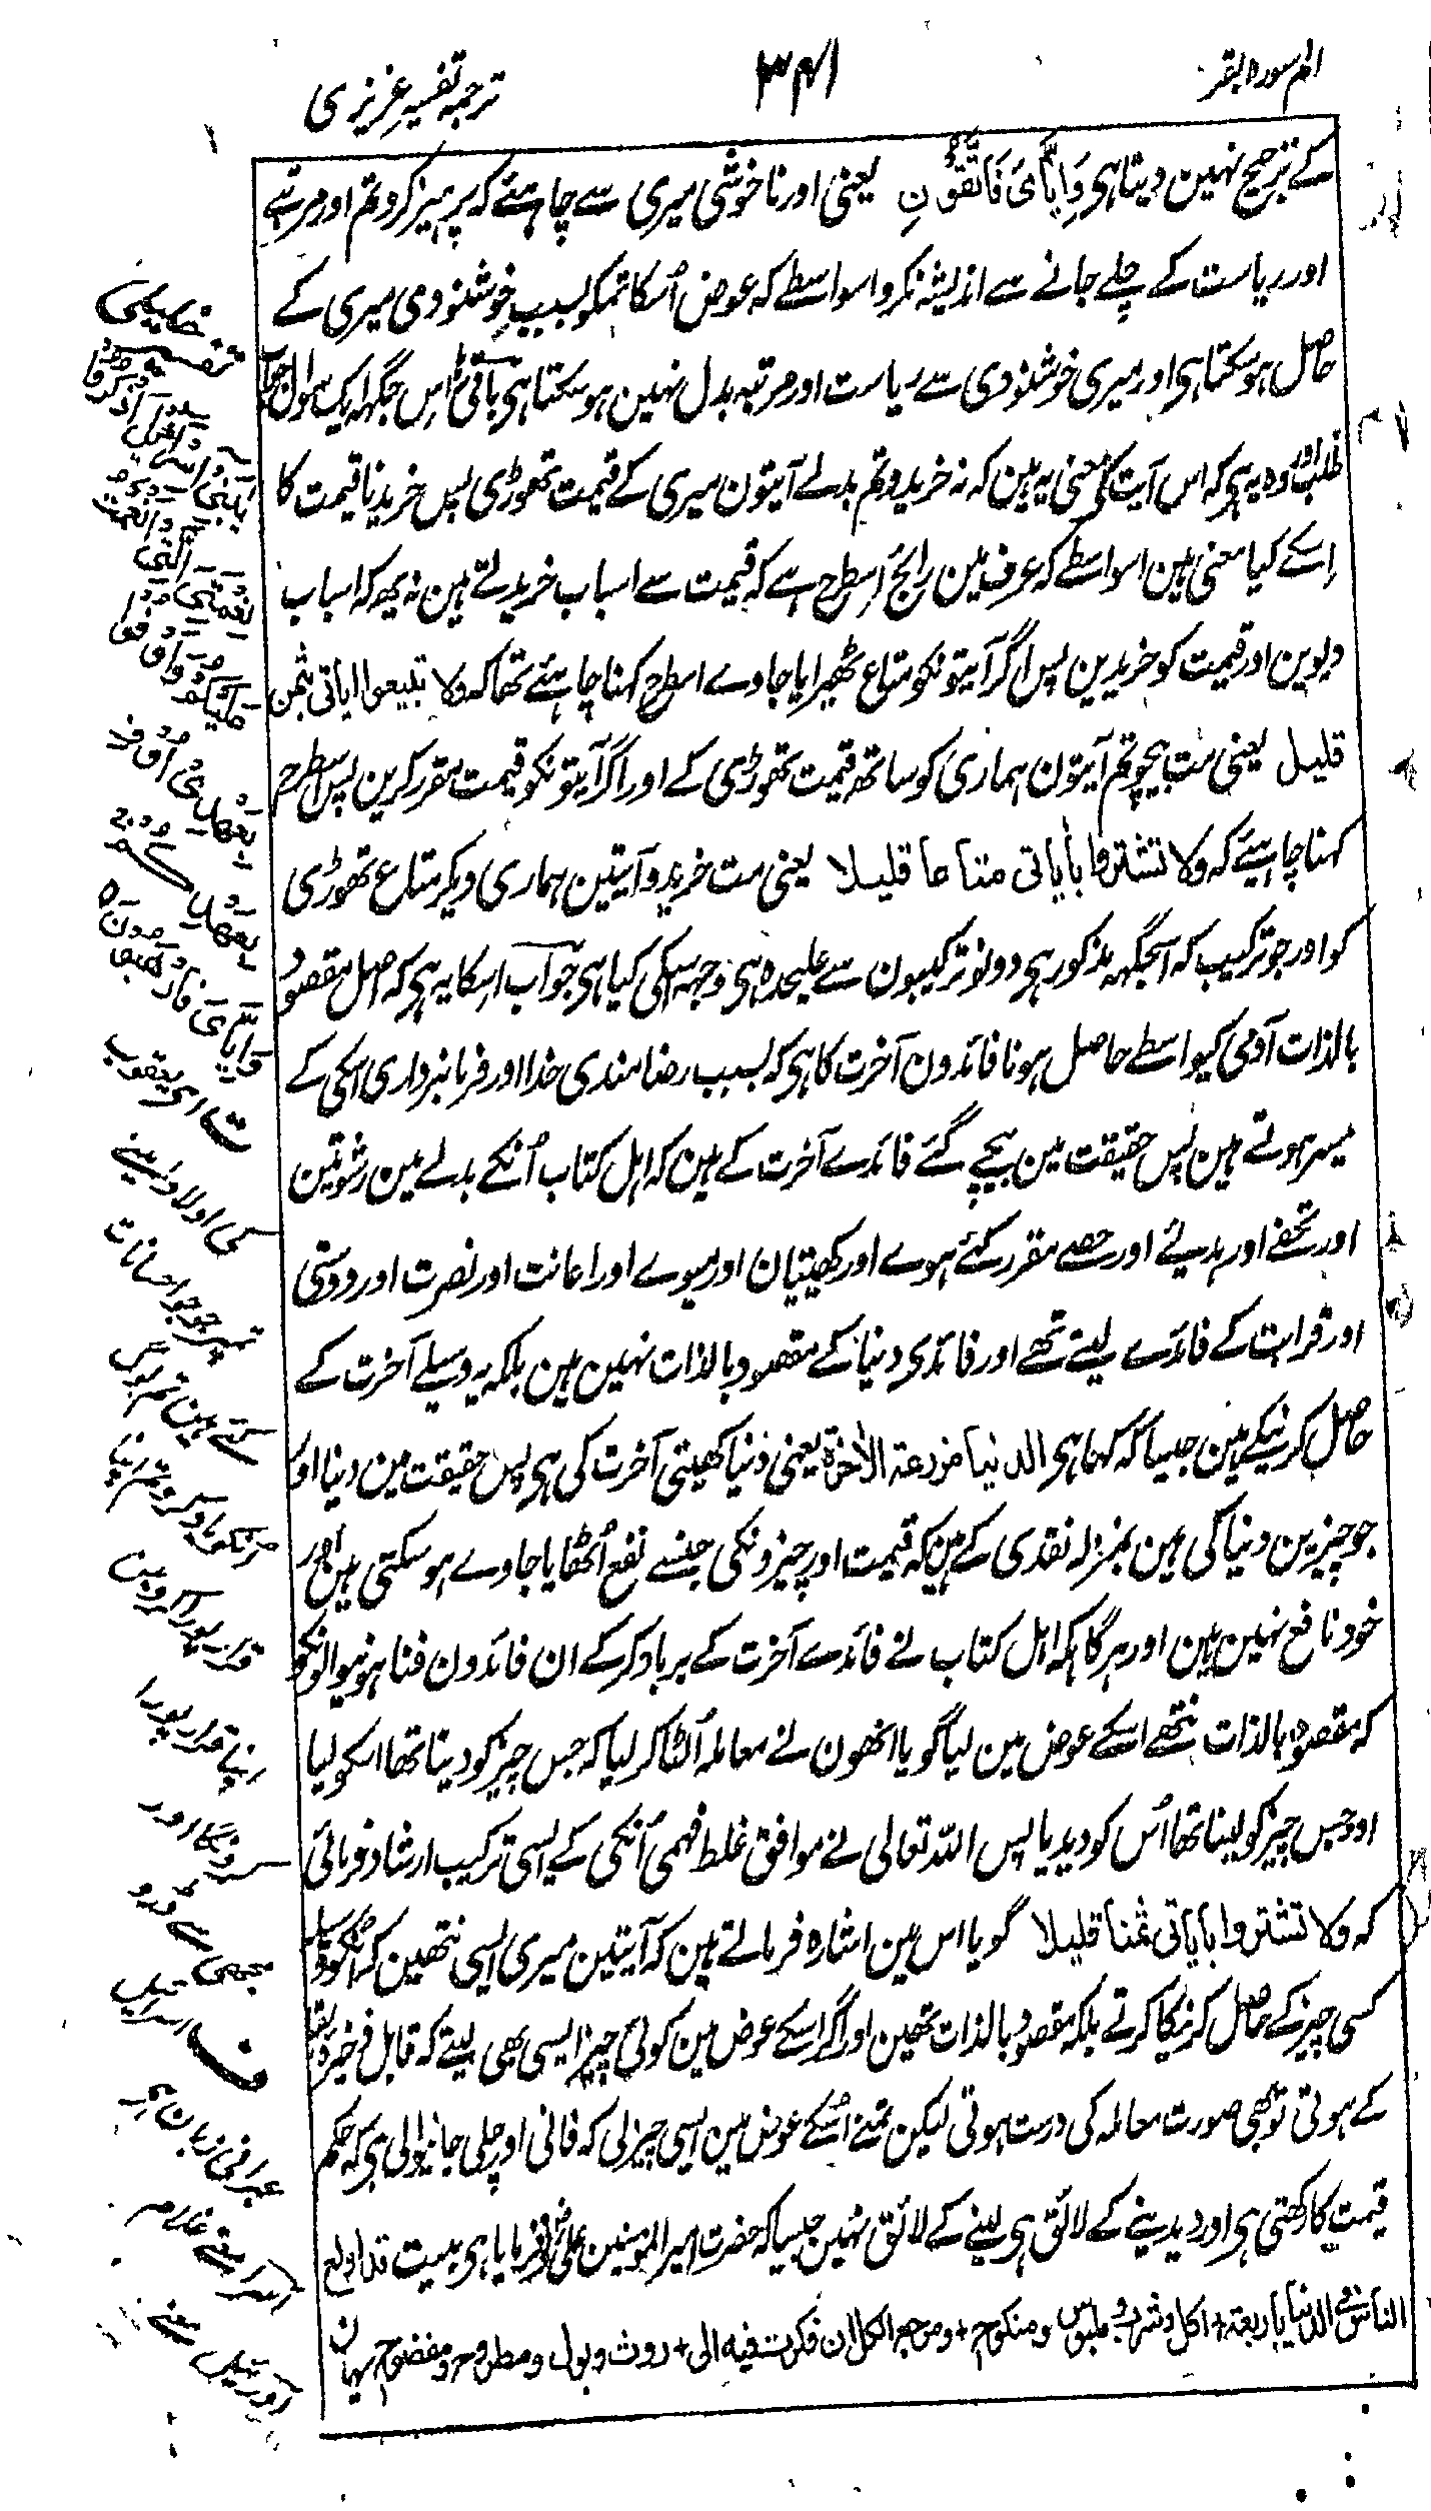 الم سورہ البقر
۳۴۱
ترجمہ تفسیر عزیزی
کے ترجیح نہین دیتا ہی وَاِیَّایَ فَاتَّقُونِ یعنی اور ناخوشی میری سے چاہئے کہ پرہیز کرو تم اور مرتبے
اور ریاست کے چلے جانے سے اندیشہ نکرو اسواسطے کہ عوض اُسکا تمکو بسبب خوشنودی میری کے
حاصل ہو سکتا ہی اور میری خوشنودی سے ریاست اور مرتبہ بدل نہین ہو سکتا ہی باقی اس جگہہ ایک سوال جواب
طلب وہ یہ ہی کہ اس آیت کی معنی یہ ہین کہ نہ خریدو تم بدلے آیتون میری کے قیمت تھوڑی پس خریدنا قیمت کا
اِسکے کیا معنی ہین اسواسطے کہ عرف مین رائج اِسطرح ہے کہ قیمت سے اسباب خریدتے ہین نہ یہہ کہ اسباب
دیوین اور قیمت کو خریدین پس اگر آیتونکو متاع ٹھیرایا جاوے اسطرح کہنا چاہئے تھا کہ ولا تبیعوا ایاتی بثمن
قلیل یعنی مت بیچو تم آیتون ہماری کو ساتھ قیمت تھوڑی کے اور اگر آیتونکو قیمت مقرر کرین پس اسطرح
کہنا چاہئے کہ ولا تشتروا بأیاتی متاعا قلیلا یعنی مت خریدو آیتین ہماری دیکر متاع تھوڑی
کو اور جو ترکیب کہ اسجگہہ مذکور ہی دونو ترکیبون سے علیحدہ ہی وجہہ اسکی کیا ہی جواب اسکا یہ ہی کہ اصل مقصود
بالذات آدمی کیواسطے حاصل ہونا فائدون آخرت کا ہی کہ بسبب رضامندی خدا اور فرمانبرداری اسکی کے
میسر ہوتے ہین پس حقیقت مین بیچے گئے فائدے آخرت کے ہین کہ اہل کتاب اُنکے بدلے مین رشوتین
اور تحفے اور ہدیے اور حصے مقرر کئے ہوے اور کھیتیان اور میوے اور اعانت اور نصرت اور دوستی
اور قرابت کے فائدے لیتے تھے اور فائدی دنیا کے مقصود بالذات نہین ہین بلکہ یہ وسیلے آخرت کے
حاصل کرنیکے ہین جیسا کہ کہا ہی الدنیا مزرعۃ الاٰخرۃ یعنی دنیا کھیتی آخرت کی ہی پس حقیقت مین دنیا اور
جو چیزین دنیا کی ہین بمنزلہ نقدی کے ہین کہ قیمت اور چیزونکی جنسے نفع اُٹھایا جاوے ہو سکتی ہین اور
خود نافع نہین ہین اور ہرگاہکہ اہل کتاب نے فائدے آخرت کے برباد کرکے ان فائدون فنا ہونیوالونکو
کہ مقصود بالذات نتھے اسکے عوض مین لیا گویا انھون نے معاملہ اُلٹا کر لیا کہ جس چیز کو دینا تھا اسکو لیا
اور جس چیز کو لینا تھا اُس کو دیدیا پس اللہ تعالی نے موافق غلط فہمی اُنکی کے ایسی ترکیب ارشاد فرمائی
کہ ولا تشتروا بأیاتی ثمنا قلیلا گویا اس مین اشارہ فرماتے ہین کہ آیتین میری ایسی نتھین کہ اُنکو وسیلہ
کسی چیز کے حاصل کرنیکا کرتے بلکہ مقصود بالذات تھین اور اگر اسکے عوض مین کوئی چیز ایسی بھی لیتے کہ قابل ذخیرہ بقا
کے ہوتی تو بھی صورت معاملہ کی درست ہوتی لیکن تمنے اُسکے عوض مین ایسی چیز لی کہ فانی اور چلی جانیوالی ہی کہ حکم
قیمت کا رکھتی ہی اور دیدینے کے لائق ہی لینے کے لائق نہین جیسا کہ حضرت امیر المومنین علی نے فرمایا ہی بیت
الناس فی الدنیا باربعۃ + اکل وشرب وملبوس ومنکوح + ومرجع الکل ان فکرت فیہ الی + روث وبول ومطروح ومفضوح یہان
بَنِیْ
نِعْمَتِیَ الَّتِیْ
عَلَیْکُمْ وَاَوْفُوا
بِعَهْدِیْ اُوْفِ
بِعَهْدِکُمْ
وَاِیَّایَ فَارْهَبُوْنِ
ت ای یعقوب
کی اولاد مینے
جو جو احسانات
کئے ہین تم پر اس
پورا کرو مین
اپنے قرار پورا
کرونگا اور
مجھی سے ڈرو
ف اسرائیل
عبرانی زبان مین
اسر کے معنے
اور ئیل معنے